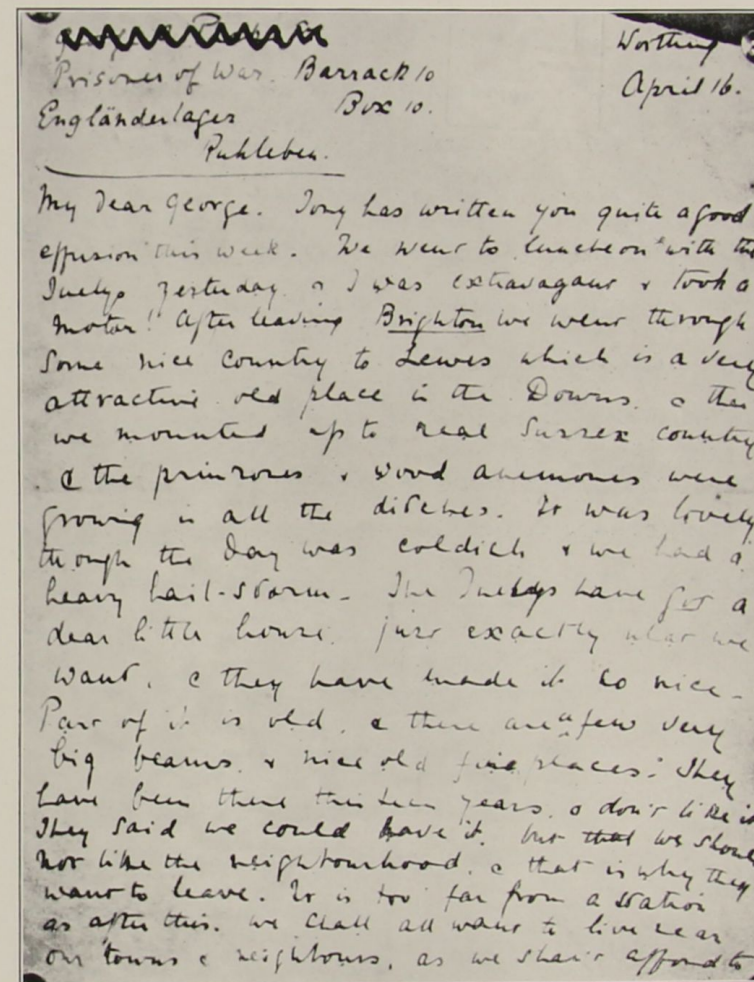 Worthing
Prisoner of War. Barrack 10
April 16.
Engländerlager Box 10.
Ruhleben.
My dear George. Tony has written you quite a good
effusion this week. We went to luncheon with the
yesterday & I was extravagant & took a
motor! After leaving Brighton we went through
some nice country to Lewes which is a very
attractive old place in the Downs. & then
we mounted up to real Sussex country
& the primroses & wood anemones were
growing in all the ditches. It was lovely
though the day was coldish & we had a
heavy hail-storm. The have got a
dear little house. just exactly what we
want. & they have made it so nice.
Part of it is old. & there are a few very
big beams. & nice old fireplaces. They
have been there thirteen years. & don't like it
They said we could have it. but that we should
not like the neighbourhood. & that is why they
want to leave. It is too far from a station
as after this. we shall all want to live near
our towns & neighbours, as we shan't afford to